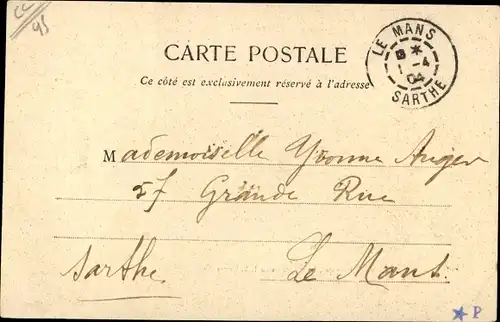 CC
45
LE MANS
8 *
1 - 4
04
SARTHE
CARTE POSTALE
Ce côté est exclusivement réservé à l'adresse
Mademoiselle Yvonne Auger
57 Grande Rue
Sarthe Le Mans
★ P